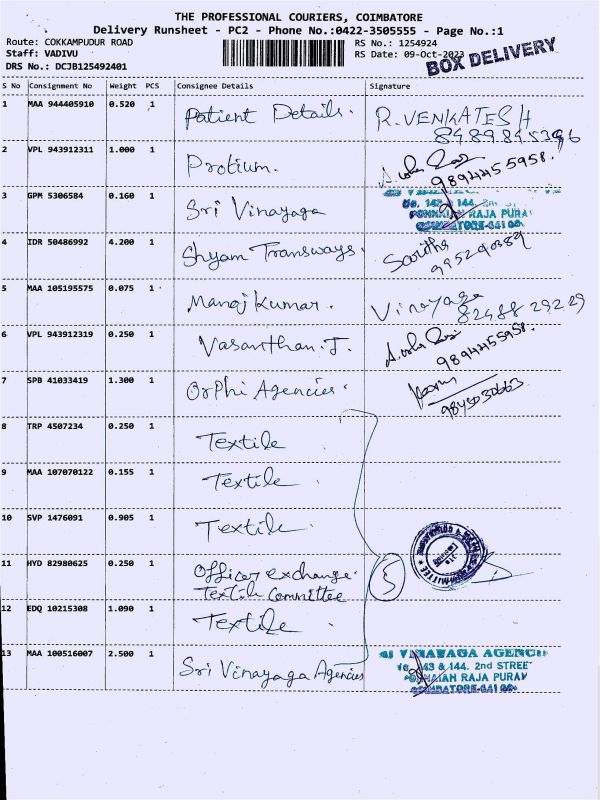 THE PROFESSIONAL COURIERS, COIMBATORE
Delivery Runsheet - PC2 - Phone No.:0422-3505555 - Page No.:1
Route: COKKAMPUDUR ROAD RS No.: 1254924
Staff: VADIVU RS Date: 09-Oct-2023
DRS No.: DCJB125492401 BOX DELIVERY
S No Consignment No Weight PCS Consignee Details Signature
1 MAA 944405910 0.520 1 Patient Details. R.VENKATESH
2 VPL 943912311 1.000 1 Protium.
9894455958.
3 GPM 5306584 0.160 1 Sri Vinayaga
RAJA PURA
4 IDR 50486992 4.200 1 Shyam Transways. Saritha
995290389
5 MAA 105195575 0.075 1 Manoj Kumar. Vinayaga
82488 29229
6 VPL 943912319 0.250 1 Vasanthan.J.
9894455958.
7 SPB 41033419 1.300 1 Orphi Agencies.
9843030663
8 TRP 4507234 0.250 1 Textile
9 MAA 107070122 0.155 1 Textile
10 SVP 1476091 0.905 1 Textile
11 HYD 82980625 0.250 1 Officer exchange. 5
Textile Committee
12 EDQ 10215308 1.090 1 Textile
13 MAA 100516007 2.500 1 Sri Vinayaga Agencies
VINAYAGA AGENCI
143 & 144. 2nd STREET
RAJA PURAM